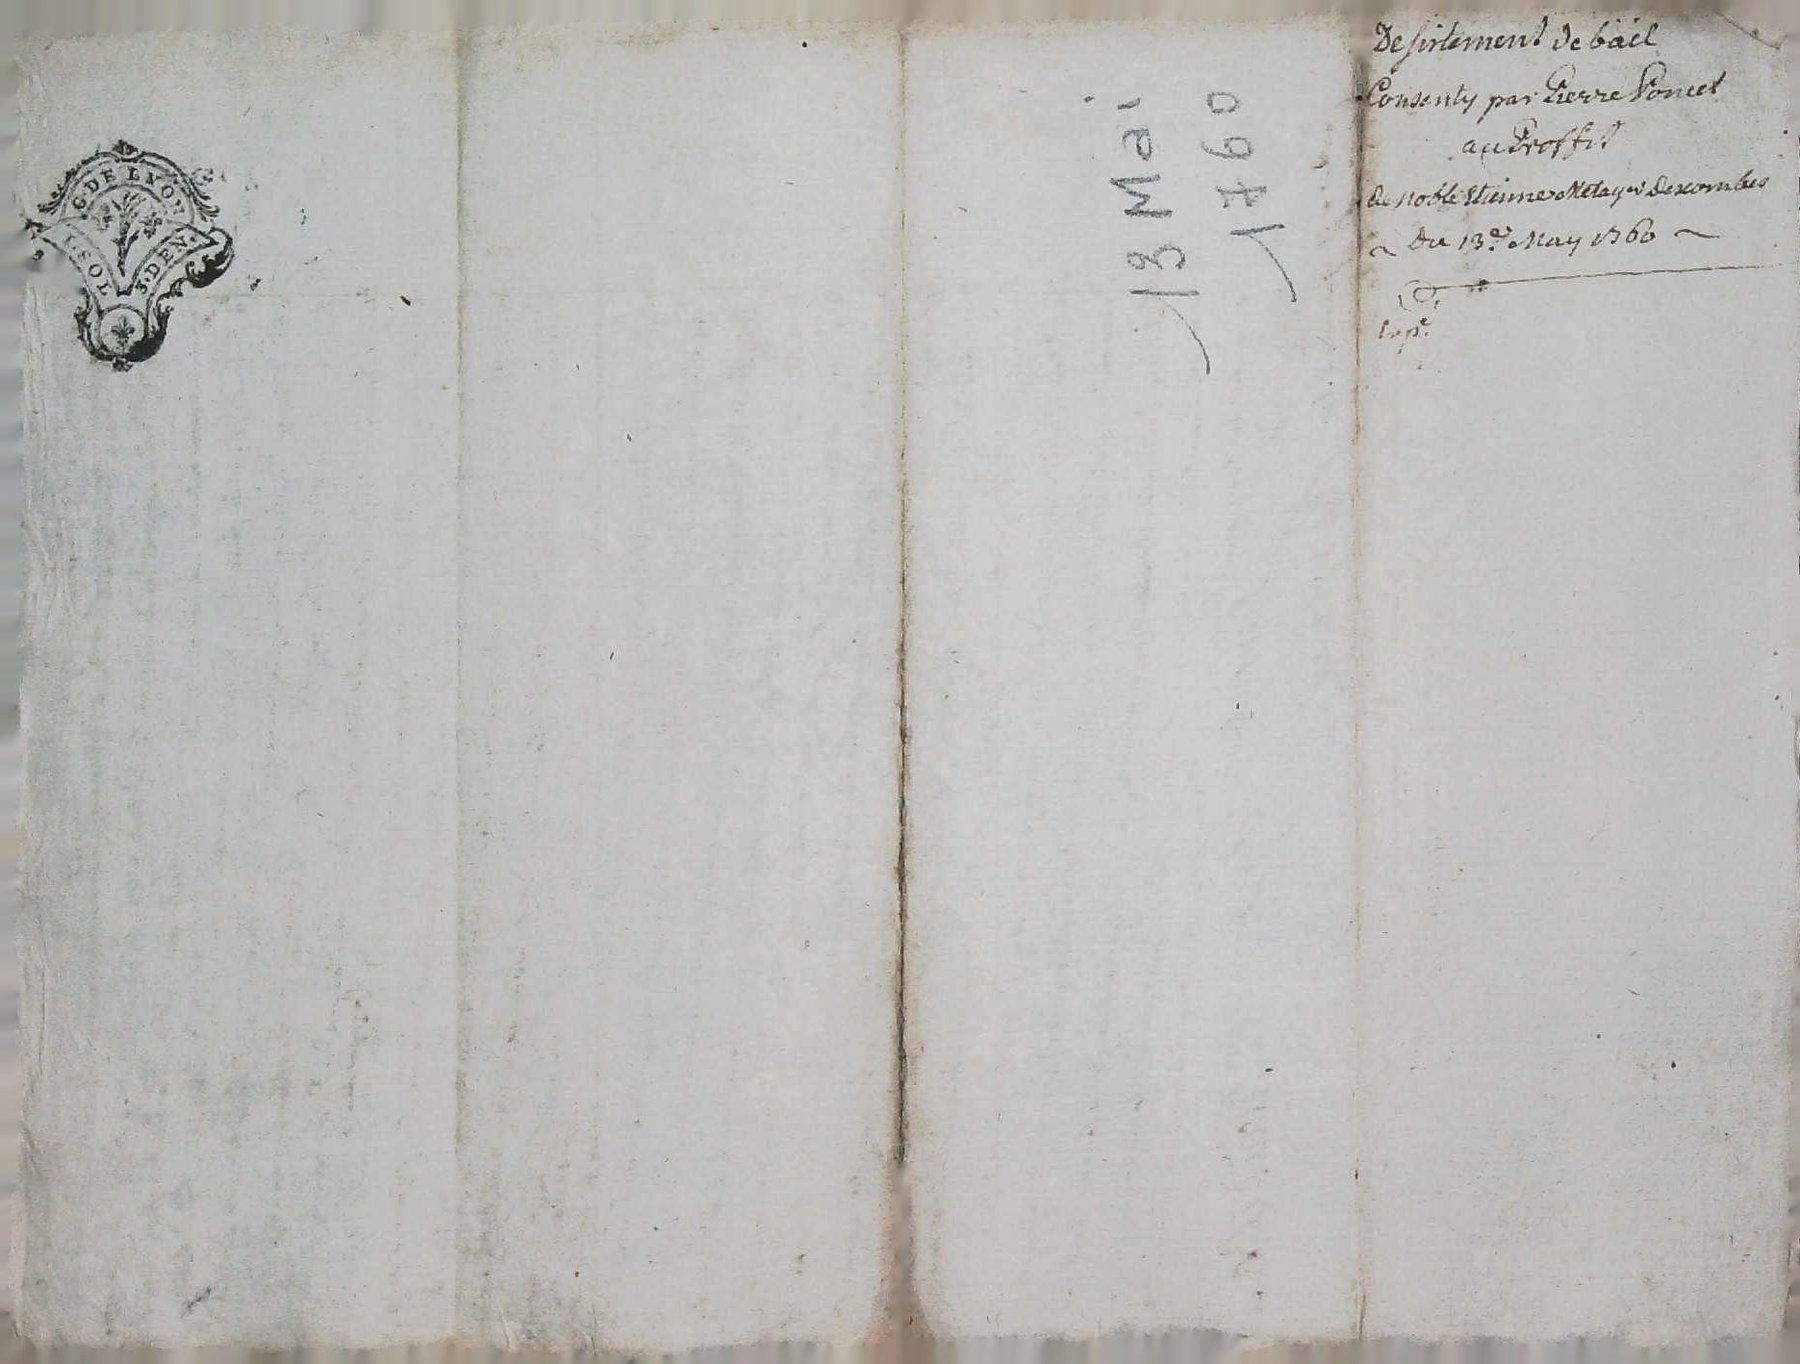 G. DE LYON
1. SOL
3. DEN.
13 Mai
1760
Desistement de bail
Consenty par Pierre Poncet
au Proffit
de noble Etienne Metayer Descombes
~ Du 13e. May 1760 ~